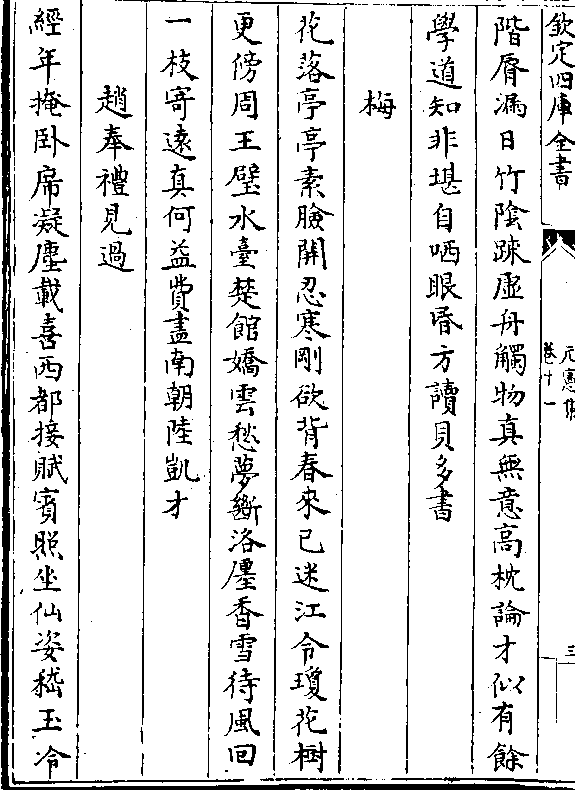 欽定四庫全書
元憲集
卷十一
三
階脣漏日竹陰疎虛舟觸物真無意高枕論才似有餘
學道知非堪自哂眼昏方讀貝多書
梅
花落亭亭素臉開忍寒剛欲背春來已迷江令瓊花樹
更傍周王璧水臺楚館嬌雲愁夢斷洛㕓香雪待風回
一枝寄遠真何益費盡南朝陸凱才
趙奉禮見過
經年掩卧席凝塵載喜西都接賦賓照坐仙姿嵇玉冷